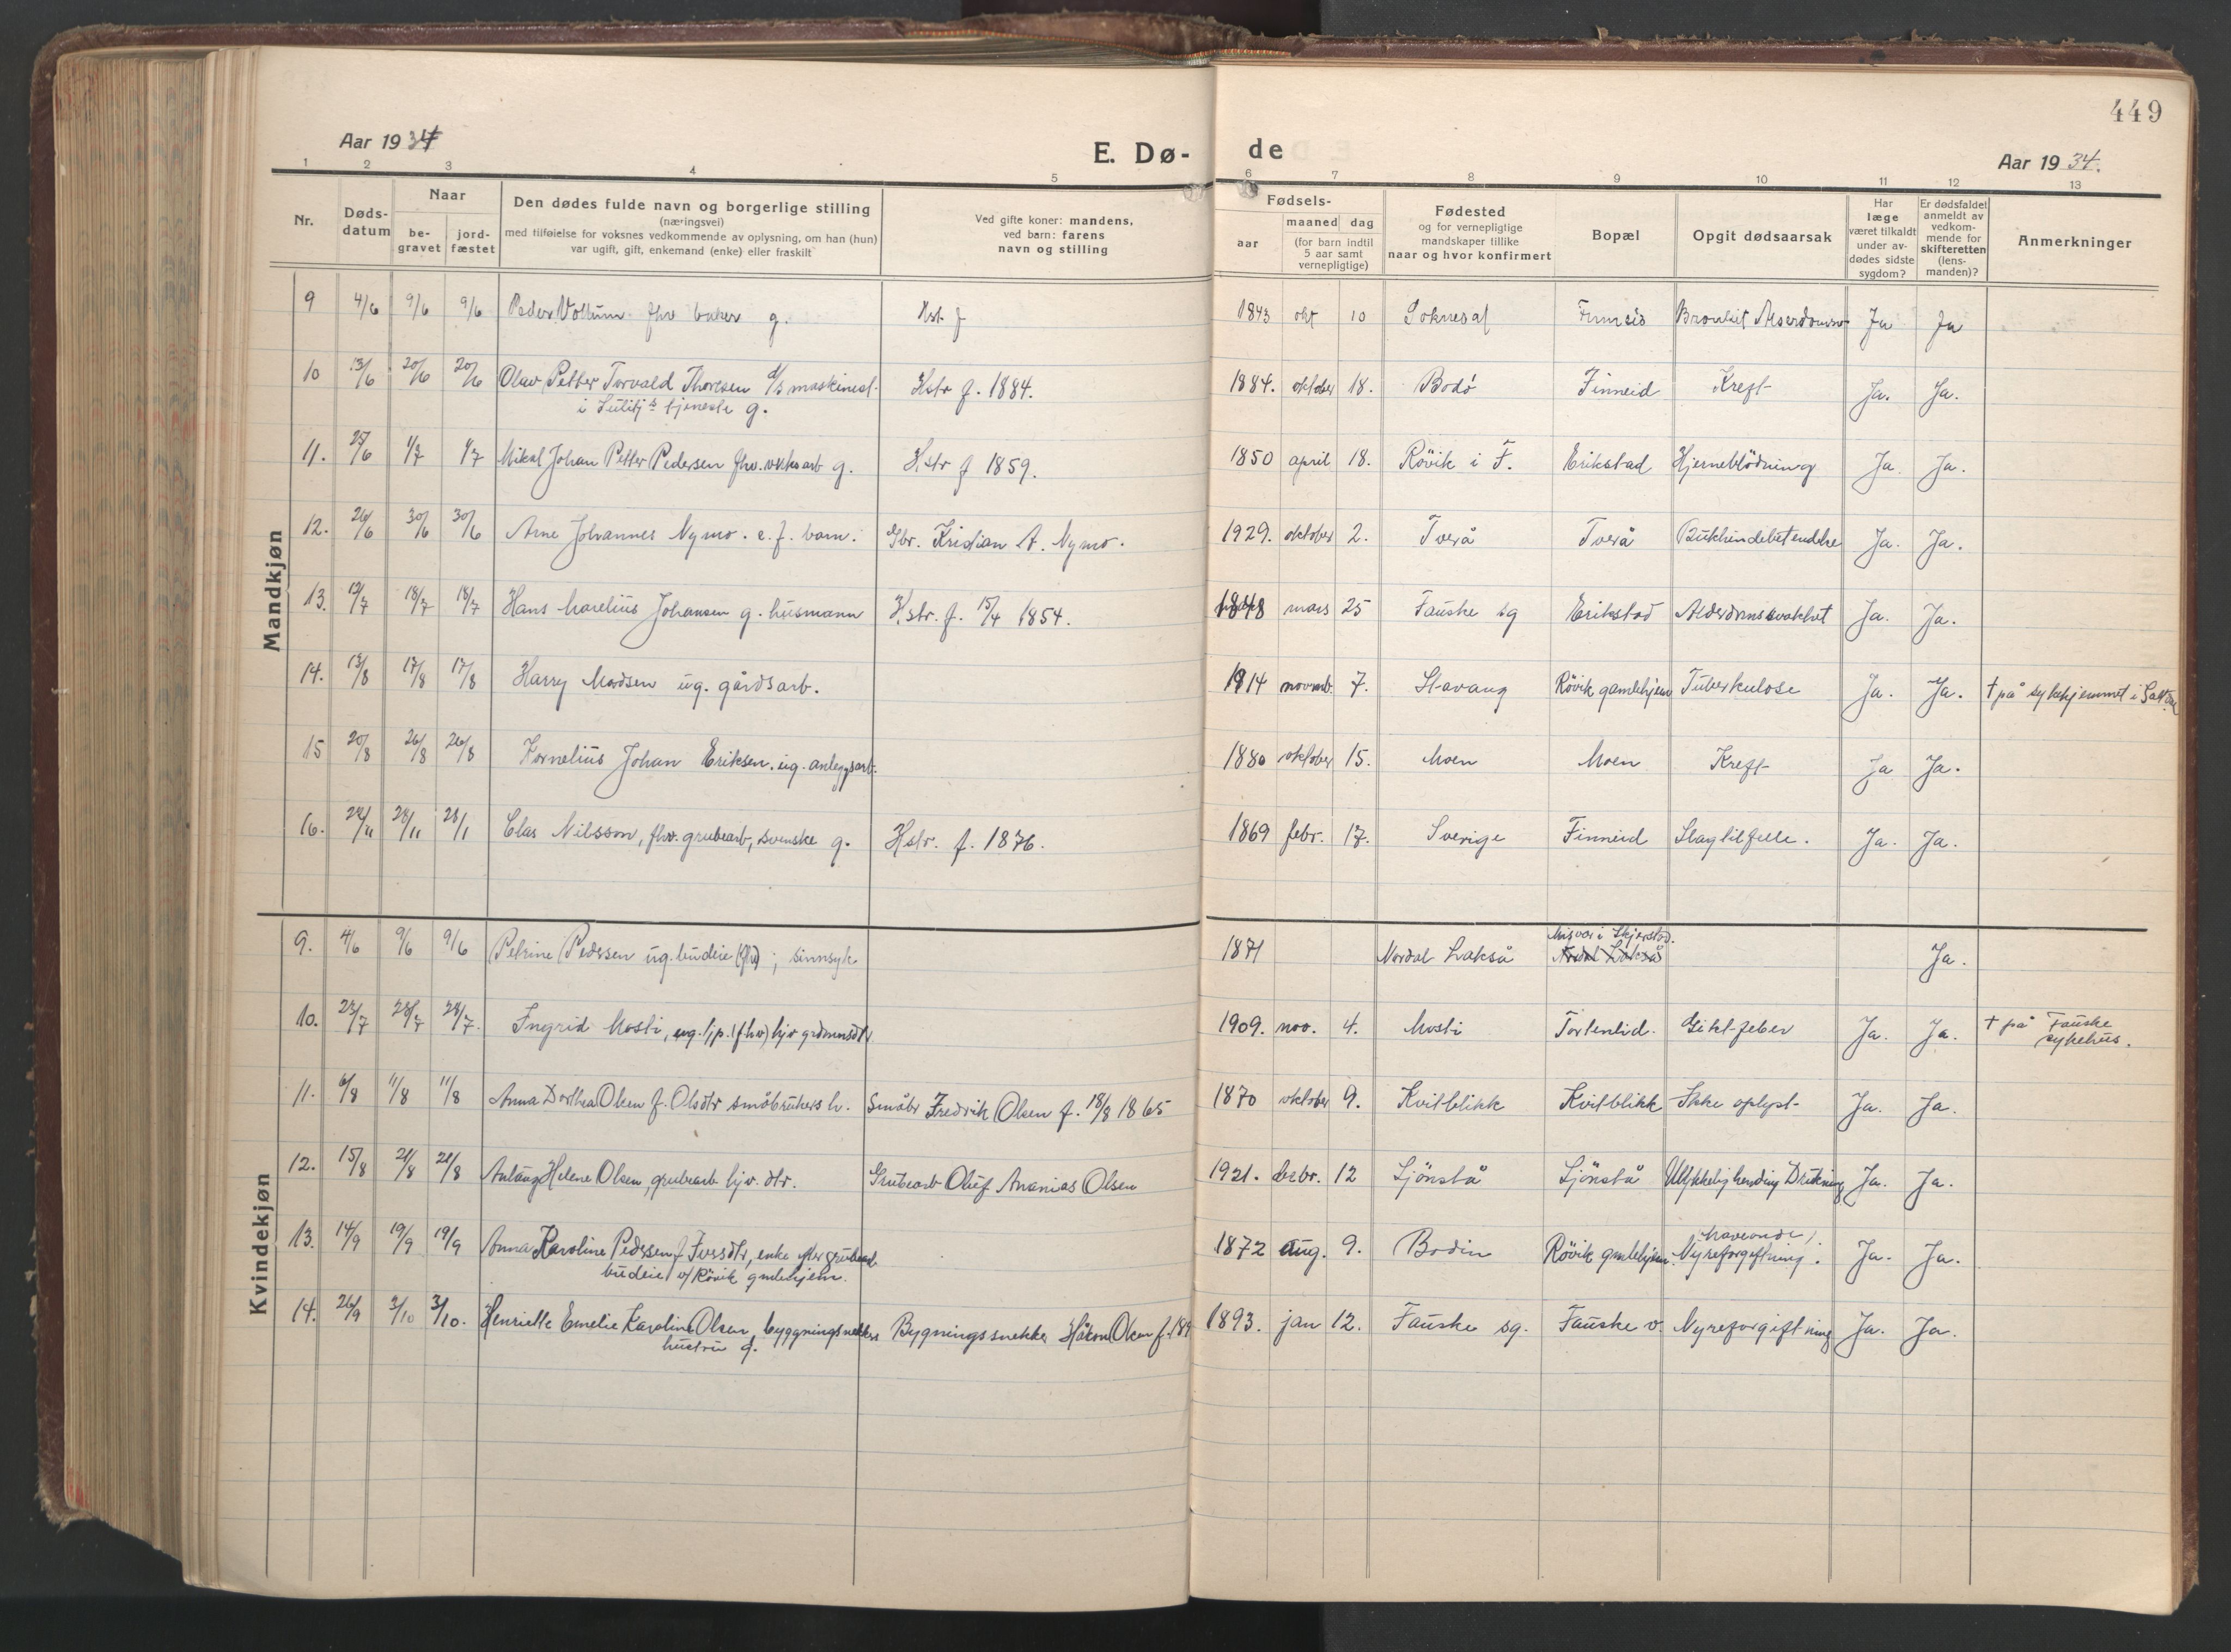 449
Aar 1934
E. Dø-
de
Aar 1934.
1 2 3 4 5 6 7 8 9 10 11 12 13
Nr.
Døds-
datum
Naar
be-
gravet
jord-
fæstet
Den dødes fulde navn og borgerlige stilling
(næringsvei)
med tilføielse for voksnes vedkommende av oplysning, om han (hun)
var ugift, gift, enkemand (enke) eller fraskilt
Ved gifte koner: mandens,
ved barn: farens
navn og stilling
Fødsels-
aar
maaned dag
(for barn indtil
5 aar samt
vernepligtige)
Fødested
og for vernepligtige
mandskaper tillike
naar og hvor konfirmert
Bopæl
Opgit dødsaarsak
Har
læge
været tilkaldt
under av-
dødes sidste
sygdom?
Er dødsfaldet
anmeldt av
vedkom-
mende for
skifteretten
(lens-
manden)?
Anmerkninger
Mandkjøn
9 4/6 9/6 9/6 Peder Vollum fhv baker g. Hst f 1843 okt 10 Soknedal Bronkit Ja Ja
10 13/6 20/6 20/6 Olav Petter Torvald Thoresen d/s maskinest. Hstr f. 1884. 1884. oktober 18. Bodö Finneid Kreft Ja. Ja.
i Sulitj.s tjeneste g.
11. 25/6 1/7 1/7 Mikal Johan Petter Pedersen fhv. g. Hstr f 1859. 1850 april 18. Rövik i F. Erikstad Hjerneblödning Ja. Ja.
12. 26/6 30/6 30/6 Arne Johannes Nymo. e. f. barn. Gbr. Kristian A. Nymo. 1929. oktober 2. Tverå Tverå Ja. Ja.
13. 12/7 18/7 18/7 Hans Marelius Johansen g. husmann Hstr. f. 15/4 1854. 1848 mars 25 Fauske sg Erikstad Alderdomssvakhet Ja. Ja.
14. 13/8 17/8 17/8 Harry Madsen ug. gårdsarb. 1914 novemb. 7. Stavang Rövik gamlehjem Tuberkulose Ja. Ja. † på sykehjemmet i Saltdal
15 20/8 26/8 26/8 Kornelius Johan Eriksen. ug. anleggsarb. 1880 oktober 15. Moen Moen Kreft Ja Ja.
16. 22/11 28/11 28/1 Clas Nilsson, fhv. grubearb, svenske g. Hstr. f. 1876. 1869 febr. 17. Sverige Finneid Slagtilfelle. Ja. Ja.
Kvindekjøn
Misvær i Skjerstad.
9. 4/6 9/6 9/6 Petrine Pedersen ug. budeie (fhv); sinnsyk 1871 Nordal Lakså Nordal Lakså Ja.
10. 22/7 28/7 28/7. Ingrid Mosti, ug. tjp. (fhv) hjv grdmannsdtr 1909. nov. 4. Mosti Tortenlid. Giktfeber Ja. Ja. † på Fauske
sykehus.
11. 6/8 11/8 11/8 Anna Dorthea Olsen f. Olsdtr småbrukers h. Småbr Fredrik Olsen f. 18/8 1865 1870 oktober 9. Kvitblikk Kvitblikk Ikke oplyst Ja. Ja.
12. 15/8 21/8 21/8 Anlaug Helene Olsen, grubearb hjv. dtr. Grubearb Oluf Ananias Olsen 1921. desbr. 12 Sjönstå Sjönstå Ulykkelig hending Drukning Ja. Ja.
13. 14/9 19/9 19/9 Anna Karoline Pedersen f Iversdtr, enke efter grubearb 1872 aug. 9. Bodin Rövik gmlehjem. Nyreforgiftning. Ja. Ja.
budeie v/ Rövik gmlehjem.
14. 26/9 3/10 3/10. Henriette Emelie Karoline Olsen, byggningsnekkers Bygningssnekker Håkon Olsen f. 189 1893. jan 12. Fauske sg. Fauske v. Nyreforgiftning Ja. Ja.
hustru g.